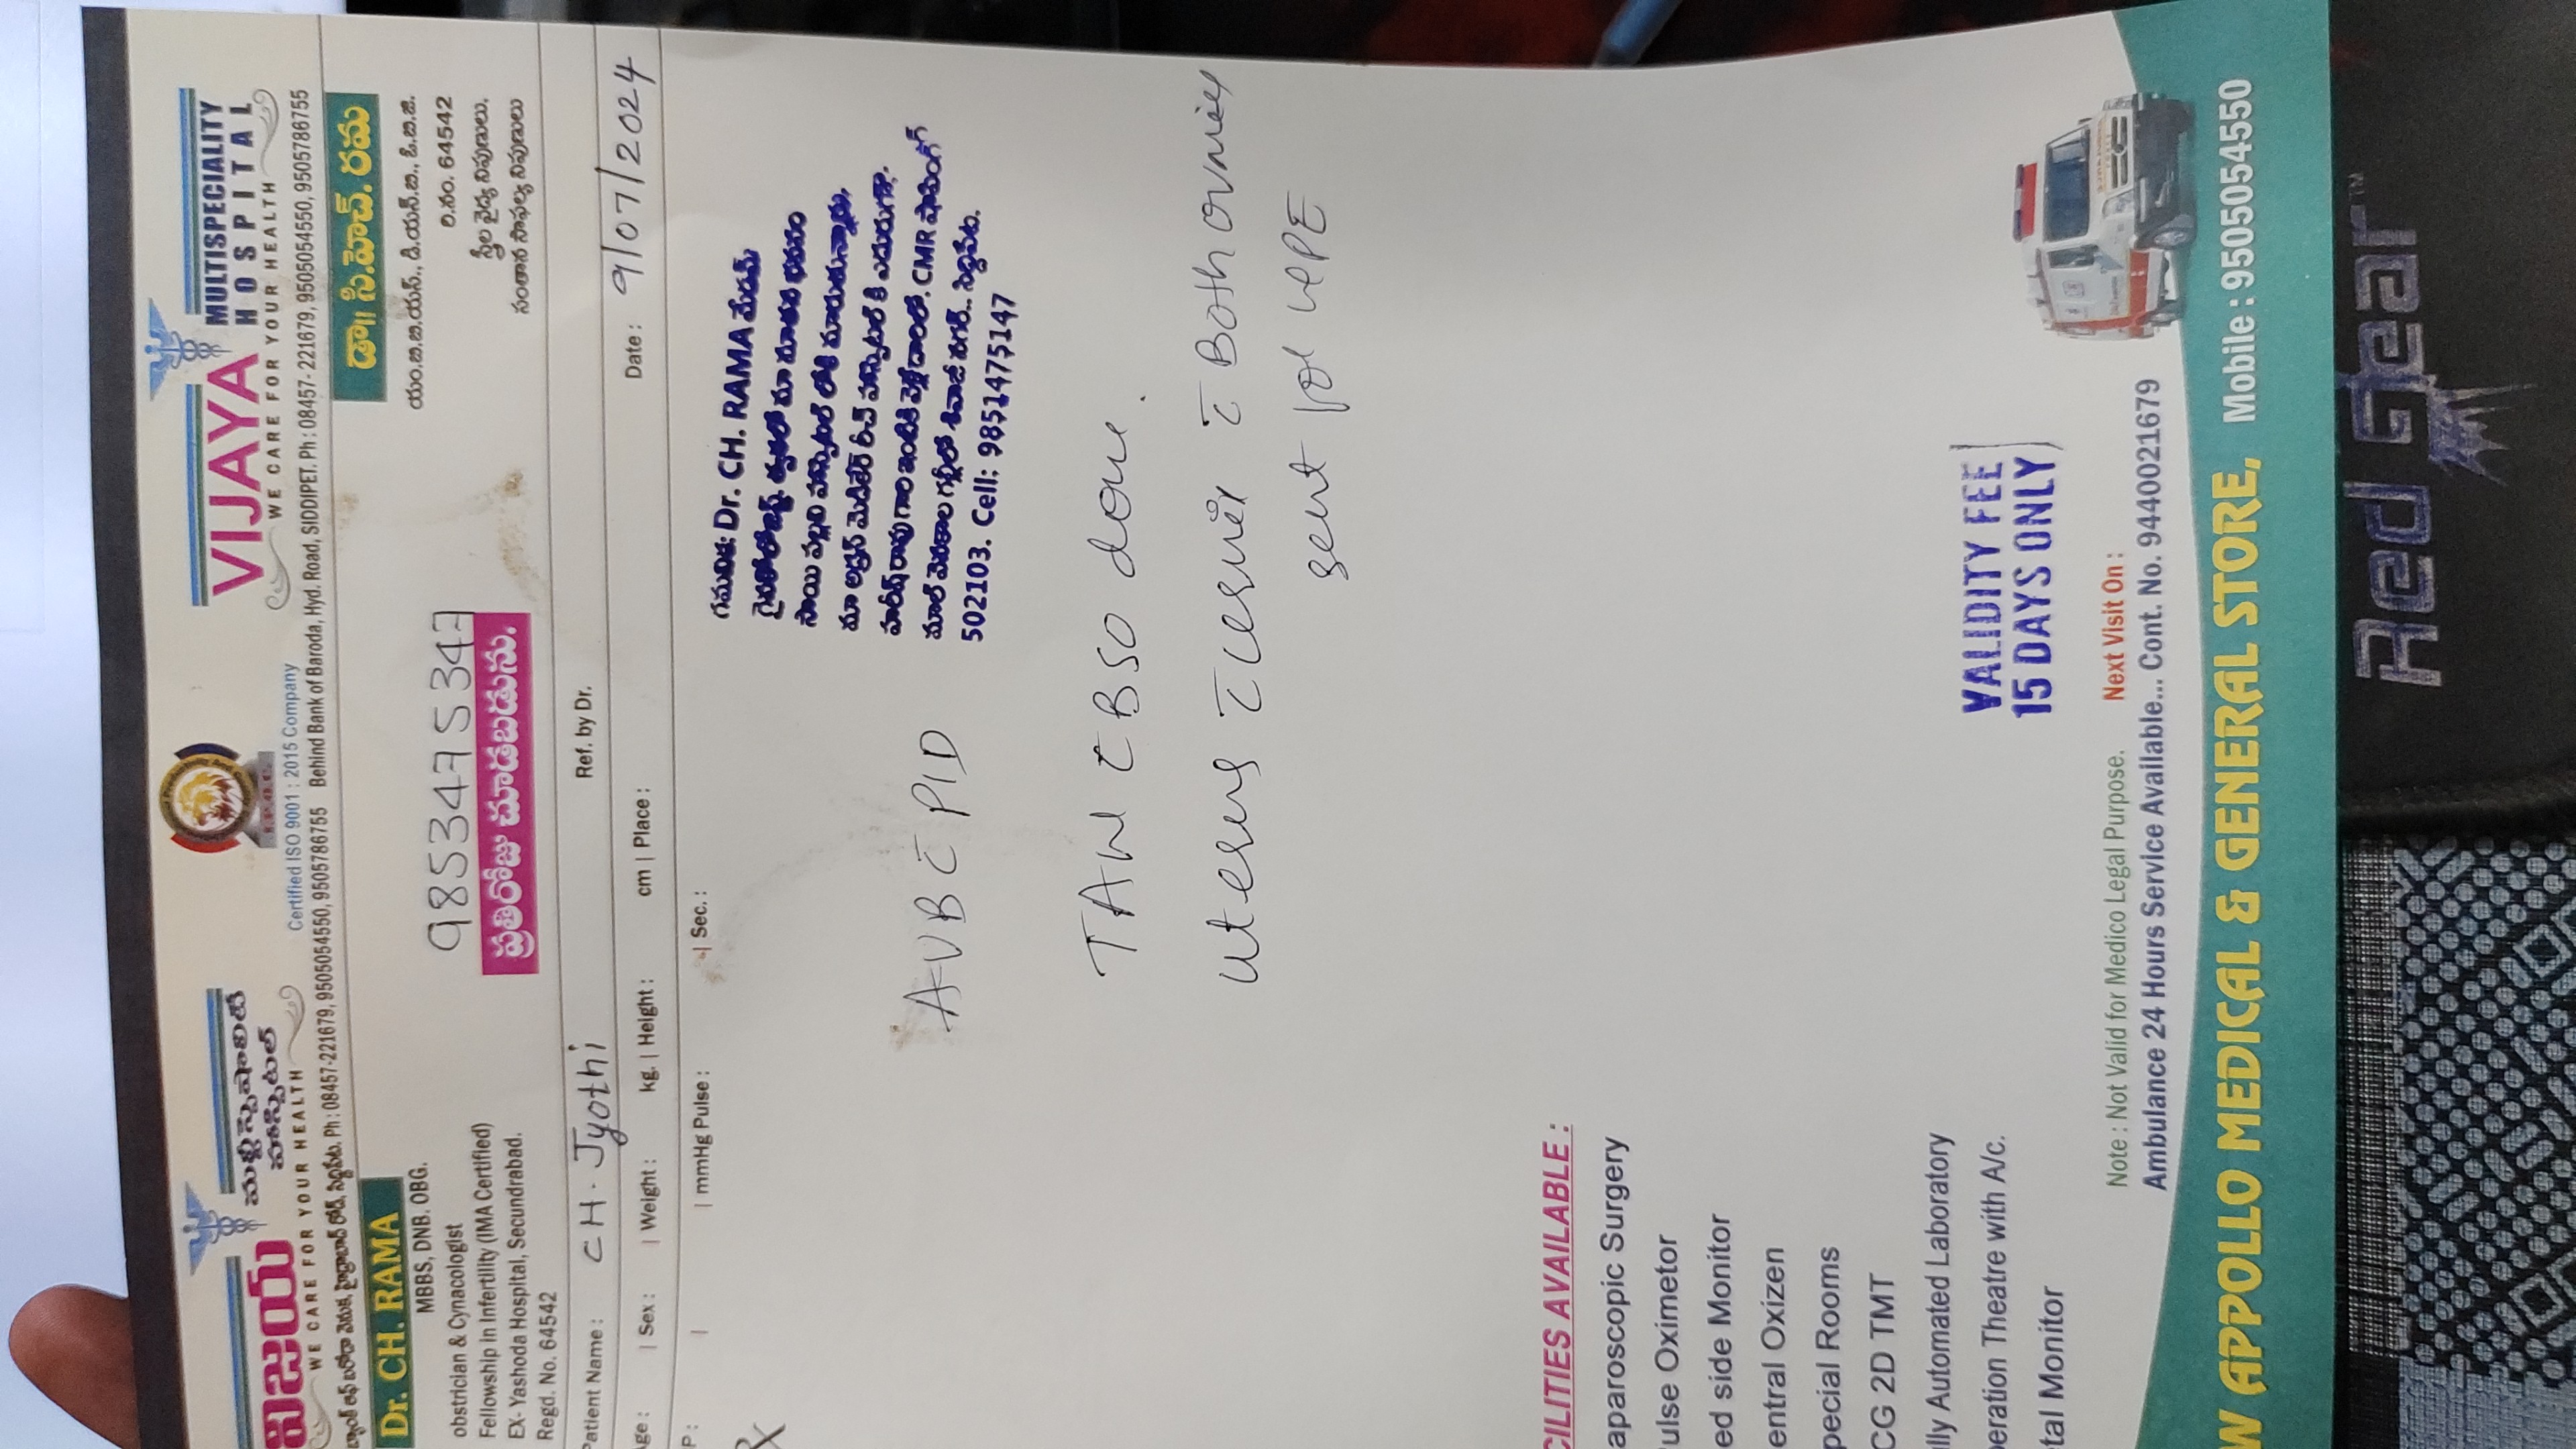 విజయ మల్టిస్పెషాలిటీ
హాస్పిటల్
WE CARE FOR YOUR HEALTH
Certified ISO 9001 : 2015 Company
VIJAYA MULTISPECIALITY
HOSPITAL
WE CARE FOR YOUR HEALTH
Ph : 08457-221679, 9505054550, 9505786755
Behind Bank of Baroda, Hyd. Road, SIDDIPET. Ph : 08457- 221679, 9505054550, 9505786755
Dr. CH. RAMA
MBBS, DNB. OBG.
obstrician & Cynacologist
Fellowship in Infertility (IMA Certified)
EX- Yashoda Hospital, Secundrabad.
Regd. No. 64542
9853475347
ప్రతిరోజు చూడబడును.
డా॥ సి.హెచ్. రమ
యం.బి.బి.యస్., డి.యన్.బి., ఓ.బి.జి.
రి.నం. 64542
స్త్రీల వైద్య నిపుణులు,
సంతాన సాఫల్య నిపుణులు
Patient Name : CH. Jyothi
Ref. by Dr.
Age : | Sex : | Weight : kg. | Height : cm | Place :
Date : 9/07/2024
P : | mmHg Pulse : | Sec. :
గమనిక: Dr. CH. RAMA మేడమ్
CMR షాపింగ్
502103. Cell: 9851475147
AUB C̅ PID
TAH C̅ BSO done.
uterus C̅ cervix C̅ Both ovaries
sent for HPE
CILITIES AVAILABLE :
aparoscopic Surgery
ulse Oximetor
ed side Monitor
entral Oxizen
pecial Rooms
CG 2D TMT
lly Automated Laboratory
eration Theatre with A/c.
tal Monitor
VALIDITY FEE
15 DAYS ONLY
Note : Not Valid for Medico Legal Purpose. Next Visit On :
Ambulance 24 Hours Service Available... Cont. No. 9440021679
W APPOLLO MEDICAL & GENERAL STORE, Mobile : 9505054550
Red Gear™